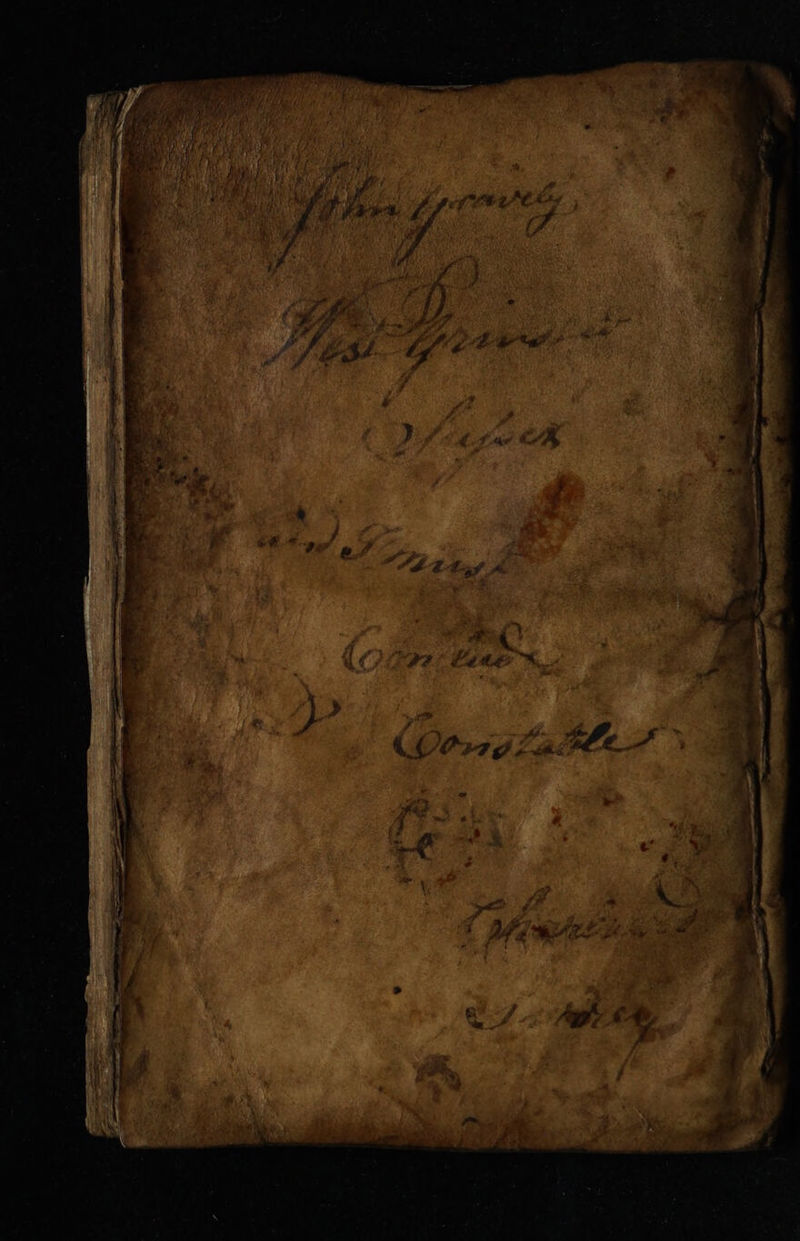 John Gravely
West Grinsted
Sussex
and I must
Conclude
Constable
Surrey